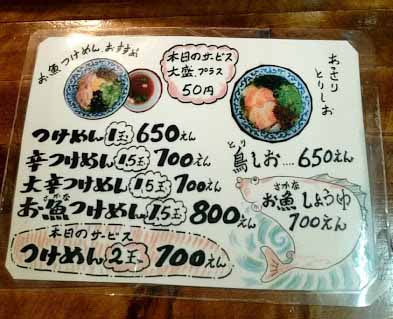 お魚つけめん、おすすめ
本日のサービス
大盛プラス
50円
あっさり
とりしお
つけめん 1玉 650えん
辛つけめん 1.5玉 700えん
大辛つけめん 1.5玉 700えん
お魚つけめん 1.5玉 800えん
さかな
本日のサービス
つけめん 2玉 700えん
とり
鳥しお....650えん
さかな
お魚しょうゆ
700えん